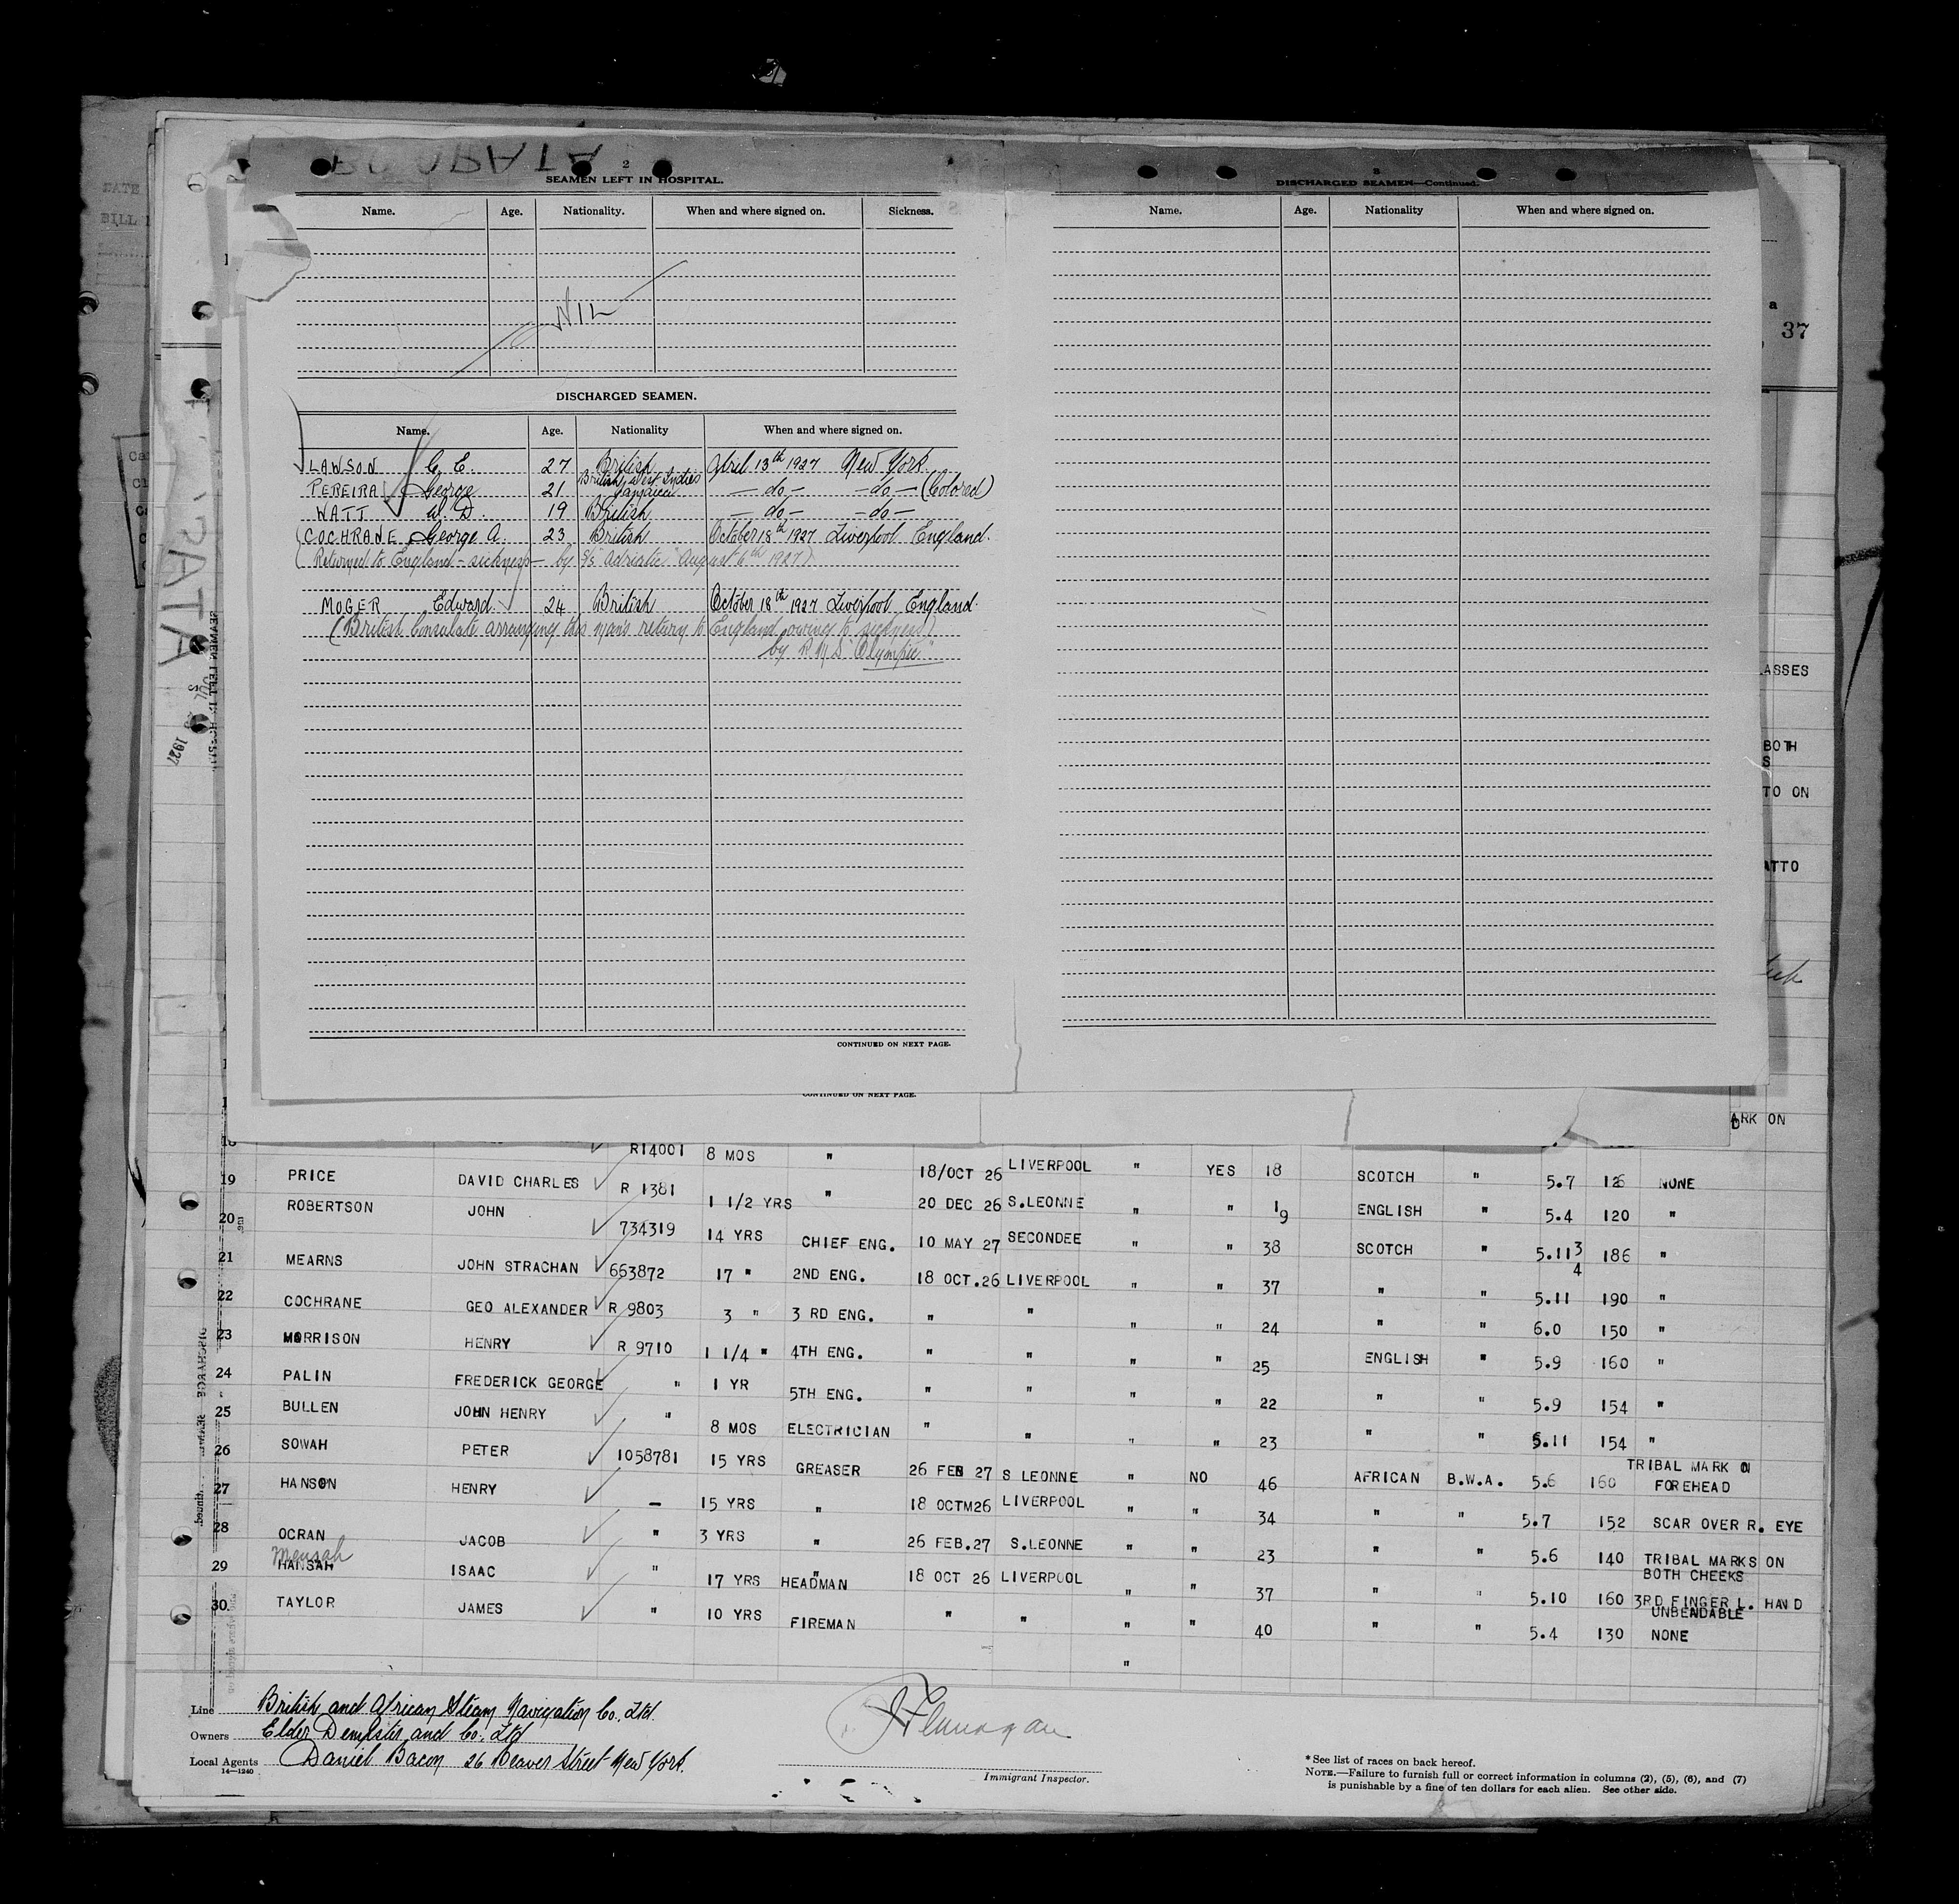 2
SEAMEN LEFT IN HOSPITAL.
Name. Age. Nationality. When and where signed on. Sickness.
NIL
DISCHARGED SEAMEN.
Name. Age. Nationality When and where signed on.
LAWSON G. E. 27 British April 13th 1927 New York.
PEREIRA George 21 British West Indies Jamaica — do — — do — (Colored)
WATT W. D. 19 British — do — — do —
COCHRANE George A. 23 British October 18th 1927 Liverpool England.
(Returned to England - sickness - by S/S "Adriatic" August 6th 1927)
MOGER Edward. 24 British October 18th 1927 Liverpool England.
(British Consulate arranging this man's return to England owing to sickness)
by R M S "Olympic"
CONTINUED ON NEXT PAGE.
3
DISCHARGED SEAMEN—Continued.
Name. Age. Nationality When and where signed on.
a
37
ASSES
BOTH
S
TO ON
ATTO
ARK ON
CONTINUED ON NEXT PAGE.
PATA
1927
18 R14001 8 MOS " 18/OCT 26 LIVERPOOL " YES 18 SCOTCH " 5.7 126 NONE
19 PRICE DAVID CHARLES R 1381 1 1/2 YRS " 20 DEC 26 S.LEONNE " " 19 ENGLISH " 5.4 120 "
20 ROBERTSON JOHN 734319 14 YRS CHIEF ENG. 10 MAY 27 SECONDEE " " 38 SCOTCH " 5.11 3/4 186 "
21 MEARNS JOHN STRACHAN 663872 17 " 2ND ENG. 18 OCT.26 LIVERPOOL " " 37 " " 5.11 190 "
22 COCHRANE GEO ALEXANDER R 9803 3 " 3 RD ENG. " " " " 24 " " 6.0 150 "
23 MORRISON HENRY R 9710 1 1/4 " 4TH ENG. " " " " 25 ENGLISH " 5.9 160 "
24 PALIN FREDERICK GEORGE " 1 YR 5TH ENG. " " " " 22 " " 5.9 154 "
25 BULLEN JOHN HENRY " 8 MOS ELECTRICIAN " " " " 23 " " 5.11 154 "
26 SOWAH PETER 1058781 15 YRS GREASER 26 FEB 27 S LEONNE " NO 46 AFRICAN B.W.A. 5.6 160 TRIBAL MARK ON FOREHEAD
27 HANSON HENRY — 15 YRS " 18 OCTM26 LIVERPOOL " " 34 " " 5.7 152 SCAR OVER R. EYE
28 OCRAN JACOB " 3 YRS " 26 FEB.27 S.LEONNE " " 23 " " 5.6 140 TRIBAL MARKS ON BOTH CHEEKS
Mensah
29 HANSAH ISAAC " 17 YRS HEADMAN " 18 OCT 26 LIVERPOOL " " 37 " " 5.10 160 3RD FINGER L. HAND UNBENDABLE
30. TAYLOR JAMES " 10 YRS FIREMAN " " " " 40 " " 5.4 130 NONE
"
Line British and African Steam Navigation Co., Ltd.
Owners Elder Dempster and Co., Ltd
Local Agents Daniel Bacon 26 Beaver Street New York.
14—1240
J Flanagan
Immigrant Inspector.
* See list of races on back hereof.
NOTE.—Failure to furnish full or correct information in columns (2), (5), (6), and (7)
is punishable by a fine of ten dollars for each alien. See other side.